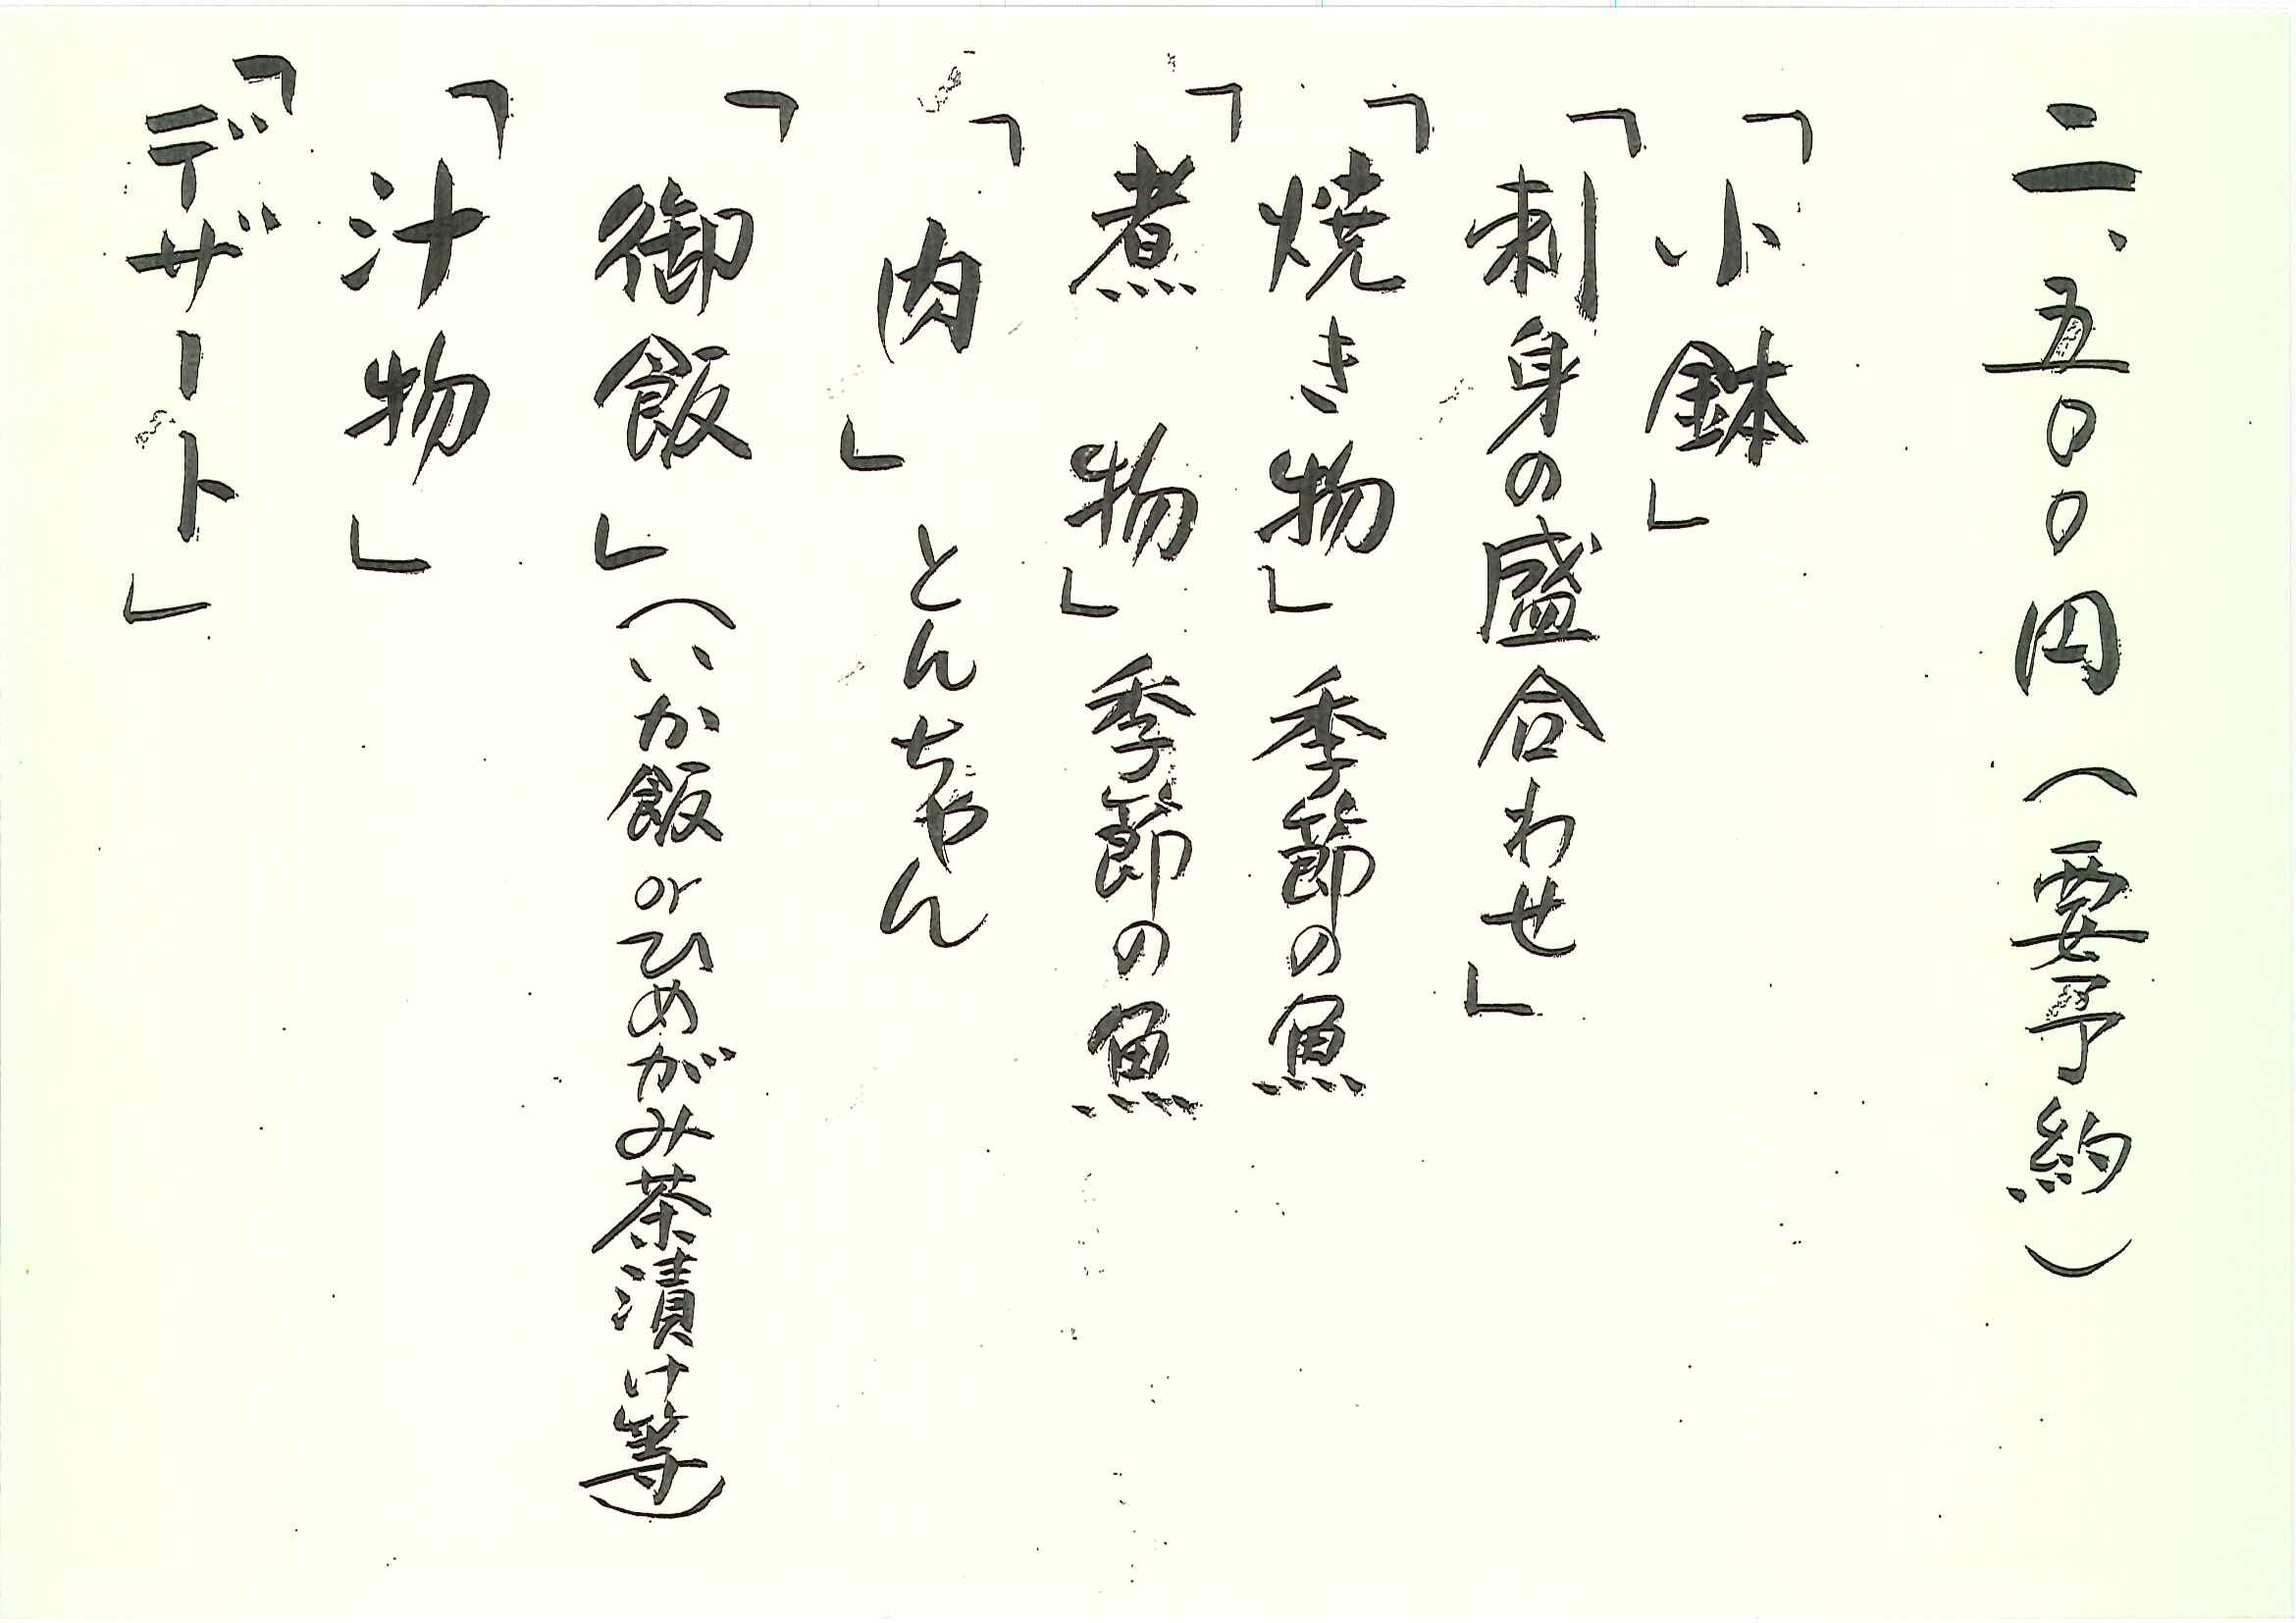 二、五〇〇円（要予約）
「小鉢」
「刺身の盛合わせ」
「焼き物」季節の魚
「煮物」季節の魚
「肉」とんちゃん
「御飯」（いか飯orひめがみ茶漬け等）
「汁物」
「デザート」